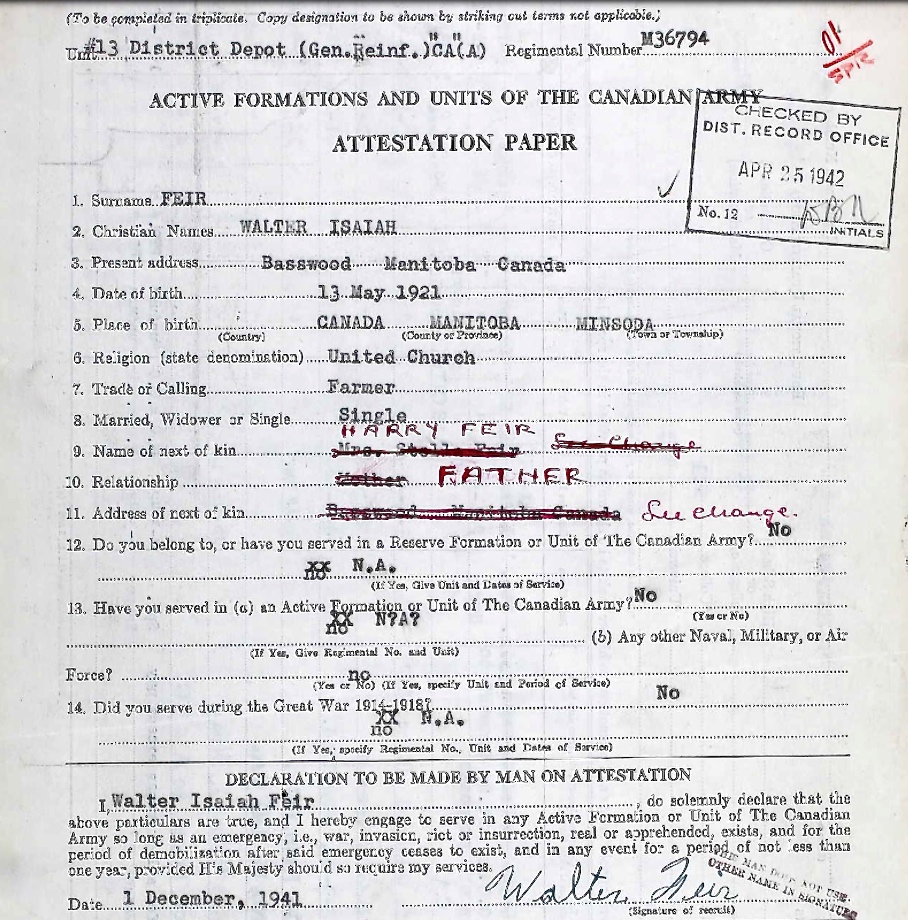 (To be completed in triplicate. Copy designation to be shown by striking out terms not applicable.)
Unit #13 District Depot (Gen.Reinf.)"CA"(A) Regimental Number M36794
ACTIVE FORMATIONS AND UNITS OF THE CANADIAN ARMY
ATTESTATION PAPER
CHECKED BY
DIST. RECORD OFFICE
APR 25 1942
No. 12
INITIALS
1. Surname FEIR
2. Christian Names WALTER ISAIAH
3. Present address Basswood Manitoba Canada
4. Date of birth 13 May 1921
5. Place of birth CANADA MANITOBA MINSODA
(Country) (County or Province) (Town or Township)
6. Religion (state denomination) United Church
7. Trade or Calling Farmer
8. Married, Widower or Single Single
HARRY FEIR
9. Name of next of kin Mrs. Stella Feir See Change
10. Relationship Mother FATHER
11. Address of next of kin Basswood Manitoba Canada See change.
12. Do you belong to, or have you served in a Reserve Formation or Unit of The Canadian Army? No
XX no N.A.
(If Yes, Give Unit and Dates of Service)
13. Have you served in (a) an Active Formation or Unit of The Canadian Army? No
(Yes or No)
XX no N?A?
(b) Any other Naval, Military, or Air
(If Yes, Give Regimental No. and Unit)
Force? no
(Yes or No) (If Yes, specify Unit and Period of Service)
14. Did you serve during the Great War 1914-1918? No
XX no N.A.
(If Yes, specify Regimental No., Unit and Dates of Service)
DECLARATION TO BE MADE BY MAN ON ATTESTATION
I, Walter Isaiah Feir, do solemnly declare that the
above particulars are true, and I hereby engage to serve in any Active Formation or Unit of The Canadian
Army so long as an emergency, i.e., war, invasion, riot or insurrection, real or apprehended, exists, and for the
period of demobilization after said emergency ceases to exist, and in any event for a period of not less than
one year, provided His Majesty should so require my services.
THE MAN DOES NOT USE
OTHER NAME IN SIGNATURE
Date 1 December, 1941 Walter Feir
(Signature of recruit)